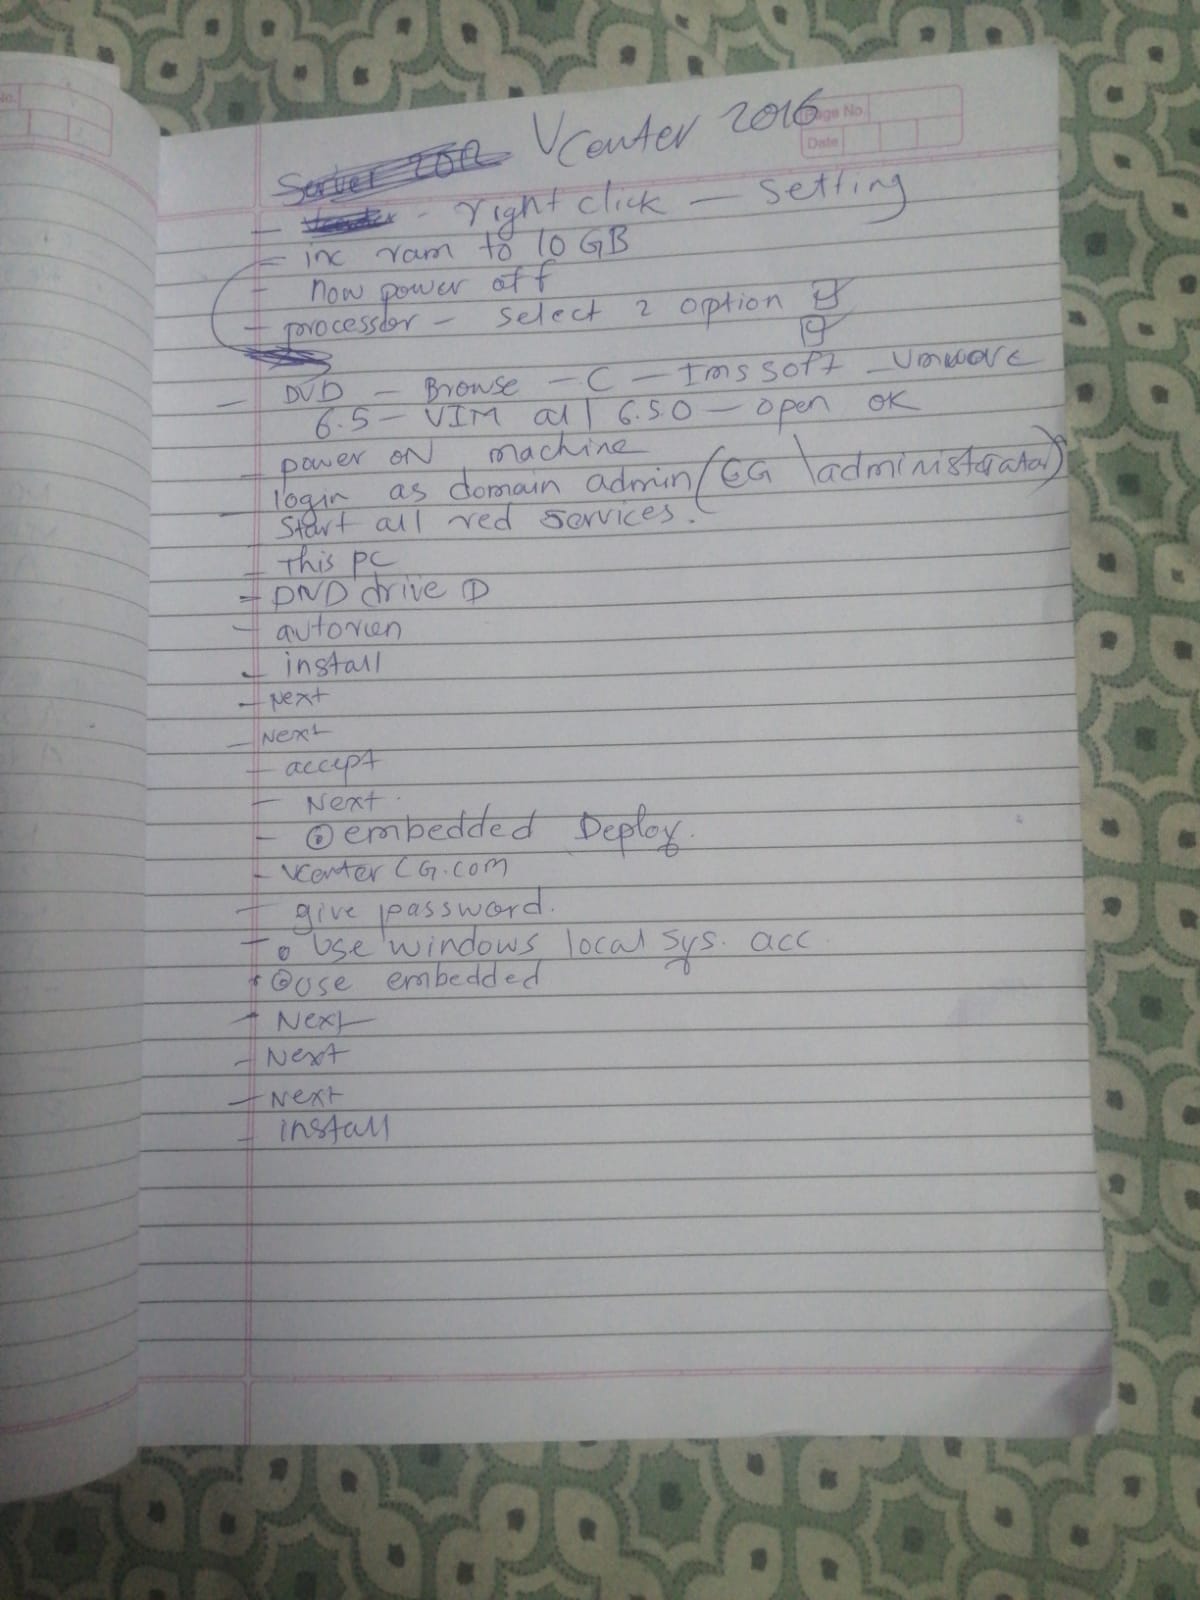 No.
Page No.
Date
Server 2012 Vcenter 2016
- Vcenter - right click - setting
- inc ram to 10 GB
- now power off
- processor - select 2 option
- DVD - Browse - C - Ims soft - vmware
6.5 - VIM all 6.50 - open ok
- power oN machine
- login as domain admin (CG \administrator)
start all red services.
- This pc
- DVD drive D
- autorun
- install
- Next
- Next
- accept
- Next.
- embedded Deploy.
- vcenter CG.com
- give password.
- Use windows local sys. acc.
- use embedded
- Next
- Next
- Next
- install